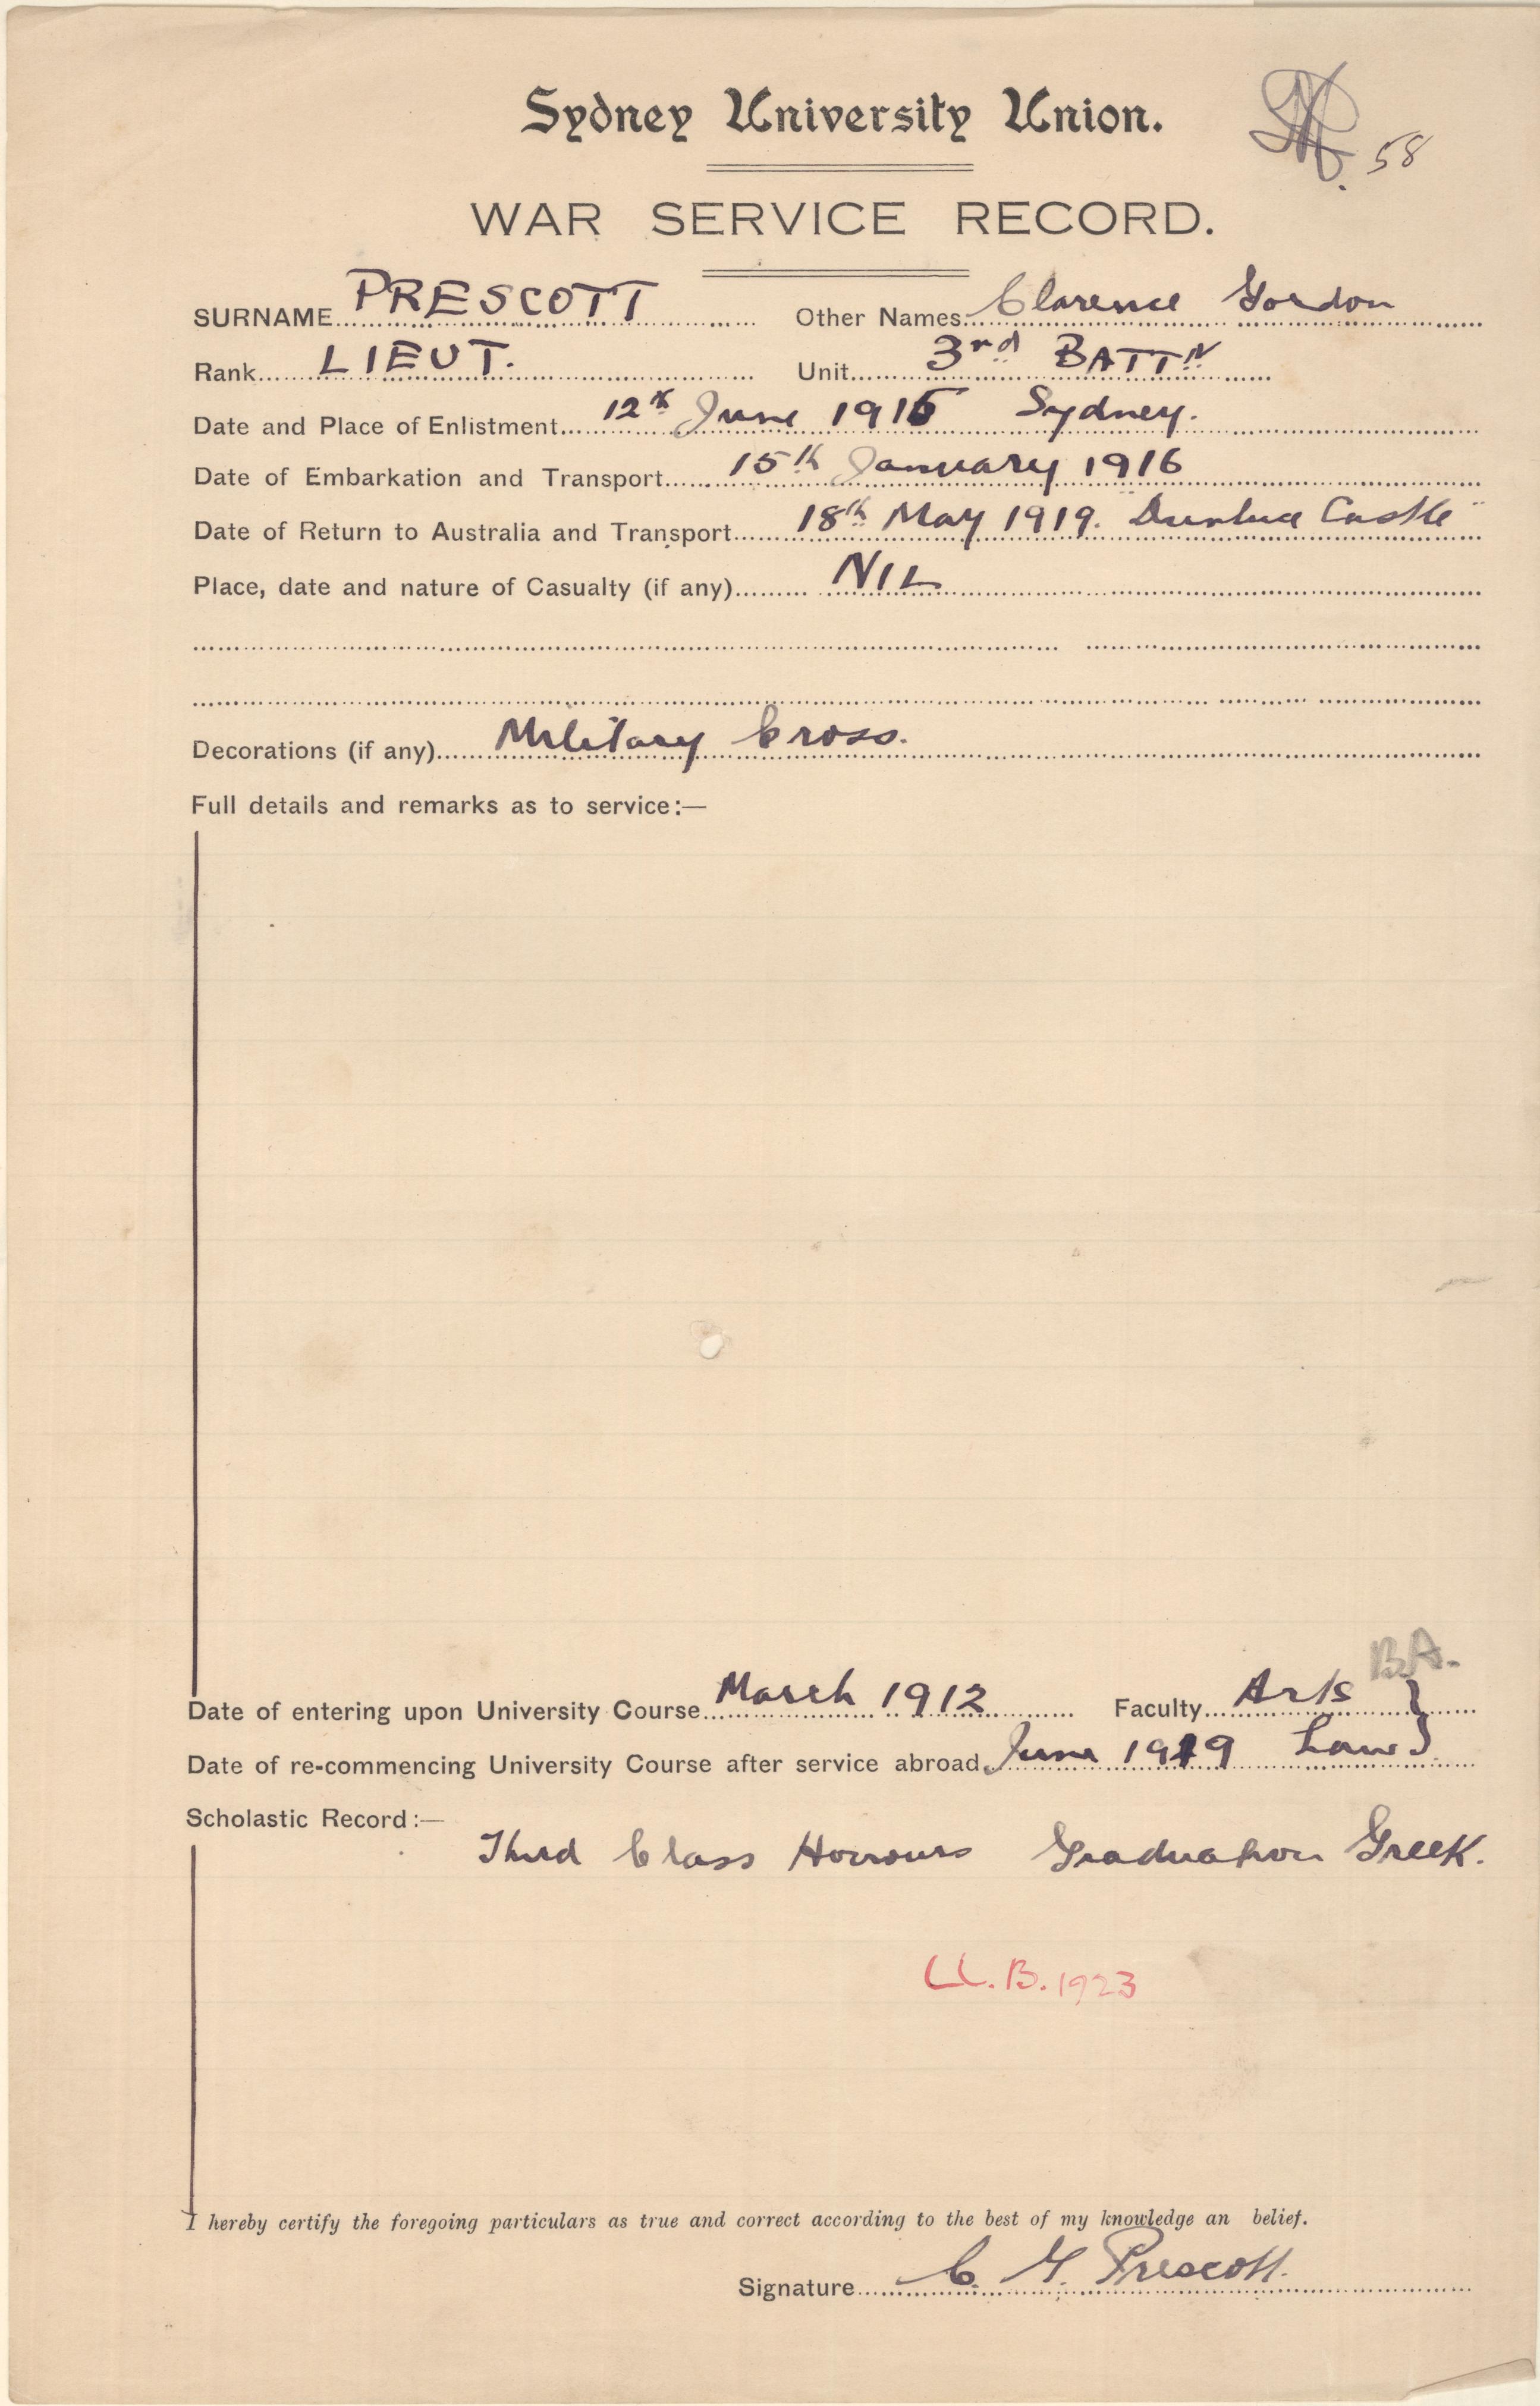 Sydney University Union.
58
WAR SERVICE RECORD.
SURNAME PRESCOTT Other Names Clarence Gordon
Rank LIEUT. Unit 3rd BATTN
Date and Place of Enlistment 12th June 1915 Sydney.
Date of Embarkation and Transport 15th January 1916
Date of Return to Australia and Transport 18th May 1919. Dunluce Castle
Place, date and nature of Casualty (if any) NIL
Decorations (if any) Military Cross.
Full details and remarks as to service:—
B.A.
Date of entering upon University Course March 1912 Faculty Arts }
Date of re-commencing University Course after service abroad June 1919 Law }
Scholastic Record:—
Third Class Honours Graduation Greek.
LL.B. 1923
I hereby certify the foregoing particulars as true and correct according to the best of my knowledge an belief.
Signature C. G. Prescott.